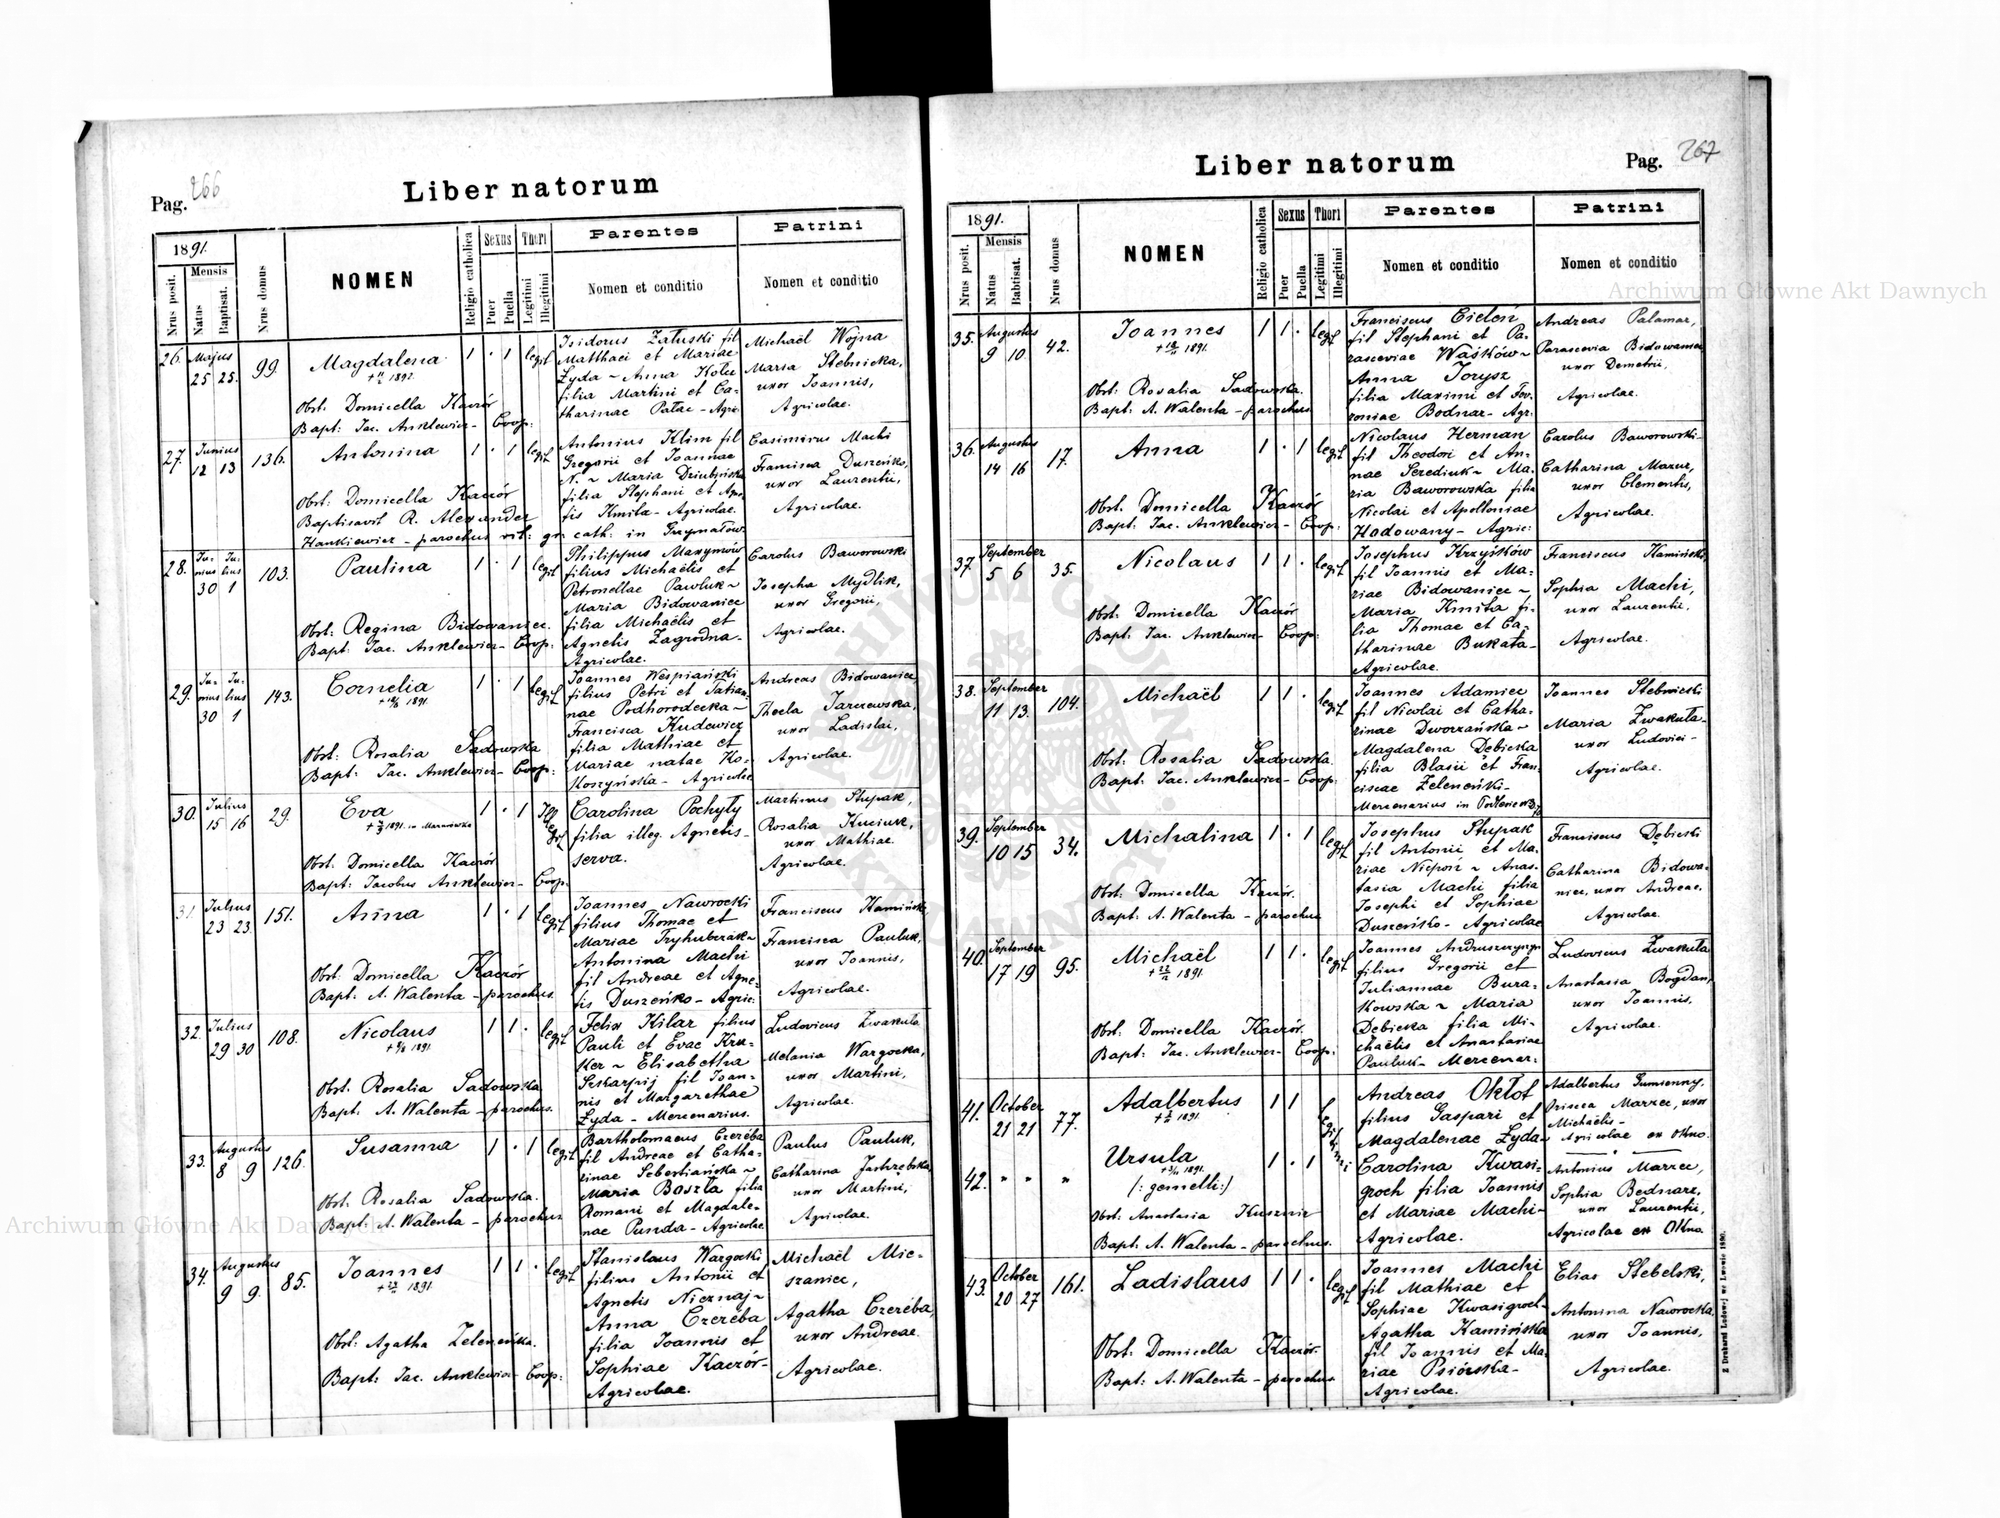 Pag. 266
Liber natorum
1891.
Mensis
Nrus posit.
Natus
Baptisat.
Nrus domus
NOMEN
Religio catholica
Sexus
Puer
Puella
Thori
Legitimi
Illegitimi
Parentes
Nomen et conditio
Patrini
Nomen et conditio
26. Majus 25 25. 99. Magdalena 1 · 1 legit
Obst. Domicella Kaczór
Bapt: Jac. Anklewicz - Coop:
Isidorus Załuski fil
Matthaei et Mariae
Łyda ~ Anna
filia Martini et Ca-
tharinae Pałac - Agri.
Michaël Wojna
Maria Stebnicka,
uxor Ioannis,
Agricolae.
27. Junius 12 13 136. Antonina 1 · 1 legit
Obst. Domicella Kaczór
Baptisavit R. Alexander
Hankiewicz - parochus rit: gr. cath: in Grzymałów
Antonius Klim fil
Gregorii et Ioannae
N. ~ Maria Dziubińska
filia Stephani et Agne-
tis Kmita - Agricolae.
Casimirus Machi
Francisca Duszeńko,
uxor Laurentii,
Agricolae.
28. Junius 30 Julius 1 103. Paulina 1 · 1 legit
Obst: Regina Bidowaniec.
Bapt: Jac. Anklewicz - Coop:
Philippus Maxymów
filius Michaëlis et
Petronellae Pawluk ~
Maria Bidowaniec
filia Michaëlis et
Agnetis Zagrodna -
Agricolae.
Carolus Baworowski
Josepha Mydlik,
uxor Gregorii,
Agricolae.
29. Junius 30 Julius 1 143. Cornelia 1 · 1 legit
Obst. Rosalia Sadowska
Bapt: Jac. Anklewicz - Coop:
Ioannes Wespiański
filius Petri et Tatian-
nae Podhorodecka ~
Francisca Kudewicz
filia Mathiae et
Mariae natae Ko-
koszyńska - Agricolae
Andreas Bidowaniec,
Thecla Jarczewska,
uxor Ladislai,
Agricolae.
30. Julius 15 16 29. Eva 1 · 1 Illegit
Obst. Domicella Kaczór
Bapt: Jacobus Anklewicz - Coop.
Carolina Pochyły
filia illeg. Agnetis -
serva.
Martinus Stupak,
Rosalia Kuciuk,
uxor Mathiae.
Agricolae.
31. Julius 23 23 151. Anna 1 · 1 legit
Obst: Domicella Kaczór
Bapt: A. Walenta - parochus.
Ioannes Nawrocki
filius Thomae et
Mariae Tryhubczak ~
Antonina Machi
fil Andreae et Agne-
tis Duszeńko - Agric:
Franciscus Kamiński,
Francisca Pauluk,
uxor Ioannis,
Agricolae.
32. Julius 29 30 108. Nicolaus 1 1 · legit
Obst. Rosalia Sadowska
Bapt: A. Walenta - parochus.
Felix Kilar filius
Pauli et Evae Kru-
ker ~ Elisabetha
fil Ioan-
nis et Margarethae
Łyda - Mercenarius.
Ludovicus Zwakuła
Melania Wargocka,
uxor Martini,
Agricolae.
33. Augustus 8 9 126. Susanna 1 · 1 legit
Obst. Rosalia Sadowska.
Bapt: A. Walenta - parochus
Bartholomaeus Czeréba
fil Andreae et Catha-
rinae Sebestiańska ~
Maria Baszta filia
Romani et Magdale-
nae Punda - Agricolae
Paulus Pauluk,
Catharina Jastrzębska
uxor Martini,
Agricolae.
34. Augustus 9 9. 85. Ioannes 1 1 · legit
Obst. Agatha Zeleneńka.
Bapt: Jac. Anklewicz - Coop:
Stanislaus Wargocki
filius Antonii et
Agnetis Nieznaj ~
Anna Czeréba
filia Ioannis et
Sophiae Kaczór -
Agricolae.
Michaël Mie-
szaniec,
Agatha Czeréba,
uxor Andreae.
Agricolae.
Liber natorum
Pag. 267
1891.
Mensis
Nrus posit.
Natus
Babtisat.
Nrus domus
NOMEN
Religio catholica
Sexus
Puer
Puella
Thori
Legitimi
Illegitimi
Parentes
Nomen et conditio
Patrini
Nomen et conditio
35. Augustus 9 10. 42. Ioannes 1 1 · legit
Obst: Rosalia Sadowska.
Bapt: A. Walenta - parochus
Franciscus Cieleń
fil Stephani et Pa-
rasceviae Waśków ~
Anna Torysz
filia Maximi et Fev-
roniae Bodnar - Agr.
Andreas Palamar,
Parascevia Bidowaniec
uxor Demetrii,
Agricolae.
36. Augustus 14 16 17. Anna 1 · 1 legit
Obst: Domicella Kaczór
Bapt: Jac. Anklewicz - Coop:
Nicolaus Herman
fil Theodori et An-
nae Serediuk ~ Ma-
ria Baworowska filia
Nicolai et Apolloniae
Hodowany - Agric:
Carolus Baworowski -
Catharina Mazur,
uxor Clementis,
Agricolae.
37 September 5 6 35. Nicolaus 1 1 · legit
Obst: Domicella Kaczór
Bapt: Jac. Anklewicz - Coop:
Josephus Krzyśków
fil Ioannis et Ma-
riae Bidowaniec ~
Maria Kmita fi-
lia Thomae et Ca-
tharinae Bukata -
Agricolae.
Franciscus Kamiński,
Sophia Machi,
uxor Laurentii,
Agricolae.
38. September 11 13. 104. Michaël 1 1 · legit
Obst: Rosalia Sadowska.
Bapt: Jac. Anklewicz - Coop:
Ioannes Adamiec
fil Nicolai et Catha-
rinae Dworzańska ~
Magdalena Dębicka
filia Blasii et Fran-
ciscae Zeleneńki -
Mercenarius in
Ioannes Stebnicki
Maria Zwakuła -
uxor Ludovici -
Agricolae.
39. September 10 15 34. Michalina 1 · 1 legit
Obst: Domicella Kaczór.
Bapt: A. Walenta - parochus
Josephus Stupak
fil Antonii et Ma-
riae Niepoń ~ Anas-
tasia Machi filia
Josephi et Sophiae
Duszeńko - Agricolae
Franciscus Dębicki
Catharina Bidowa-
niec, uxor Andreae.
Agricolae.
40. September 17 19 95. Michaël 1 1 · legit
Obst: Domicella Kaczór.
Bapt: Jac. Anklewicz - Coop:
Ioannes Andruszczyszyn
filius Gregorii et
Juliannae Bura-
kowska ~ Maria
Dębicka filia Mi-
chaëlis et Anastasiae
Pauluk - Mercenar:
Ludovicus Zwakuła
Anastasia Bogdan,
uxor Ioannis,
Agricolae.
41. October 21 21 77. Adalbertus 1 1 Legitimi
Andreas Oktot
filius Gaspari et
Magdalenae Łyda ~
Adalbertus Gumienny.
Prisca Marzec, uxor
Michaëlis -
Agricolae ex Okno.
42. " " " Ursula 1 · 1
(: gemelli :)
Obst: Anastasia Kusznir
Bapt: A. Walenta - parochus.
Carolina Kwasi-
groch filia Ioannis
et Mariae Machi -
Agricolae.
Antonius Marzec,
Sophia Bednarz,
uxor Laurentii,
Agricolae ex Okno.
43. October 20 27 161. Ladislaus 1 1 · legit
Obst: Domicella Kaczór.
Bapt: A. Walenta - parochus
Ioannes Machi
fil Mathiae et
Sophiae Kwasigroch ~
Agatha Kamińska
fil Ioannis et Ma-
riae Psiórska -
Agricolae.
Elias Stebelski,
Antonina Nawrocka,
uxor Ioannis,
Agricolae.
Archiwum Główne Akt Dawnych
Archiwum Główne Akt Dawnych